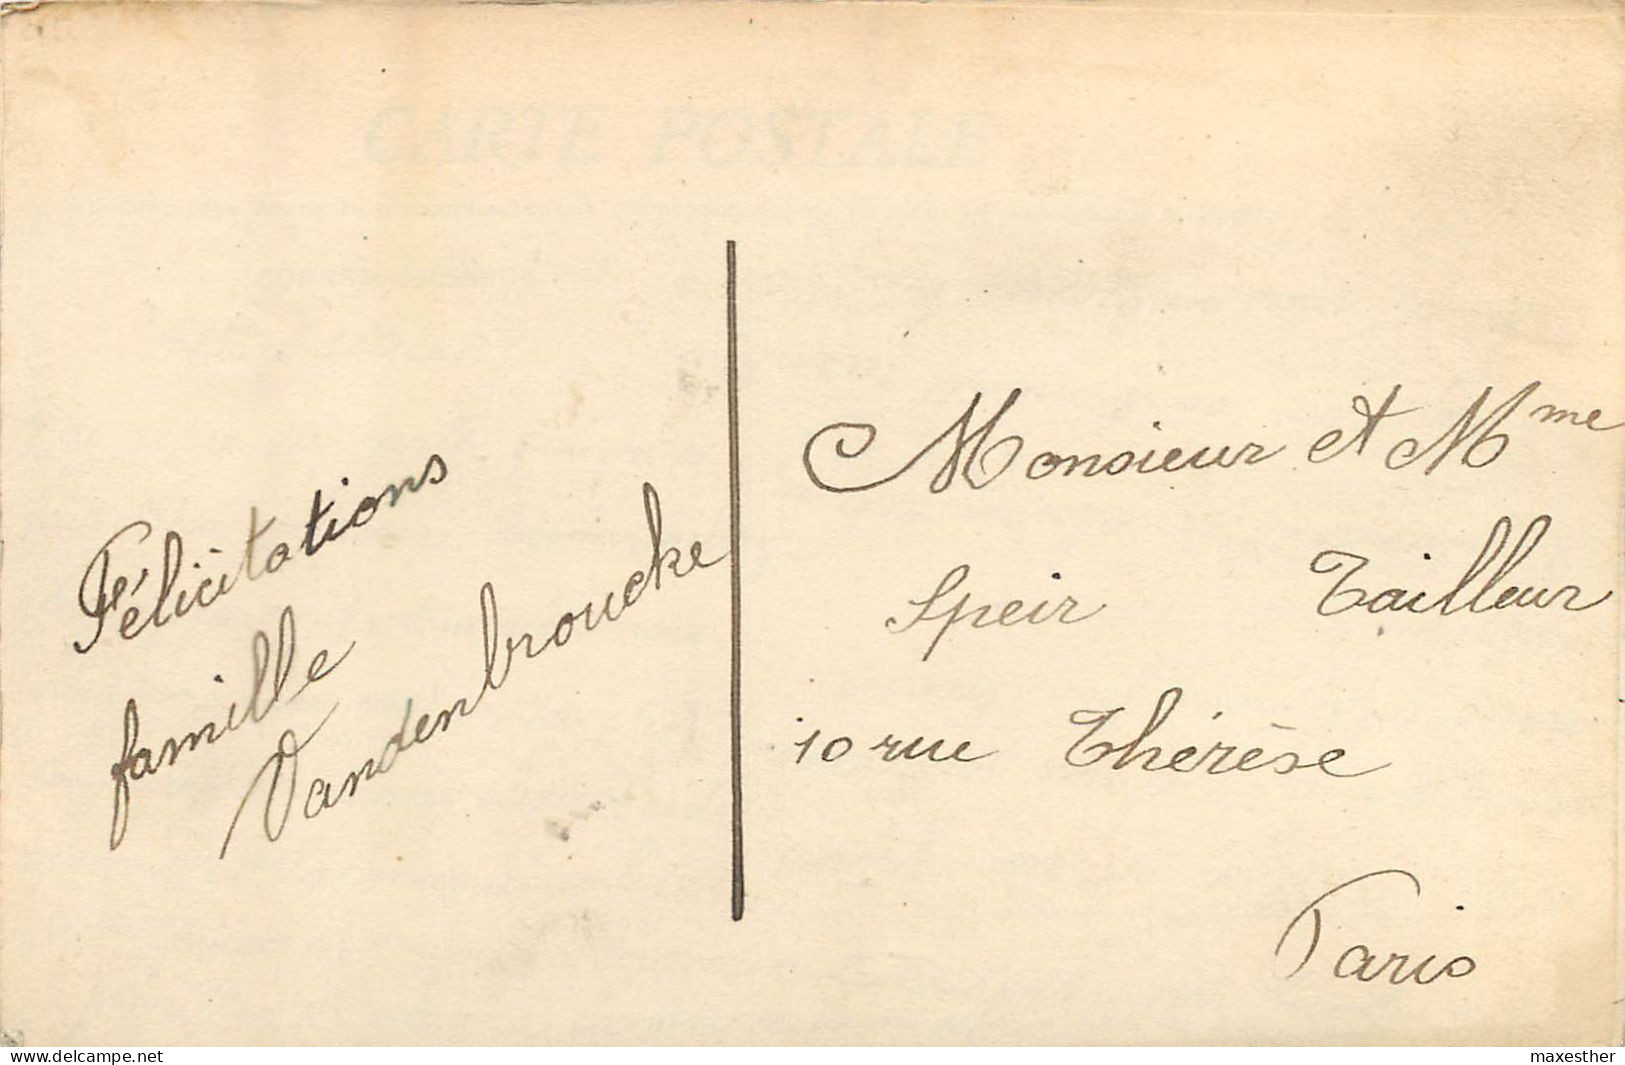 CARTE POSTALE
Félicitations
famille
Vandenbroucke
Monsieur et Mme
Speir Tailleur
10 rue Thérèse
Paris
https://www.delcampe.net
maxesther